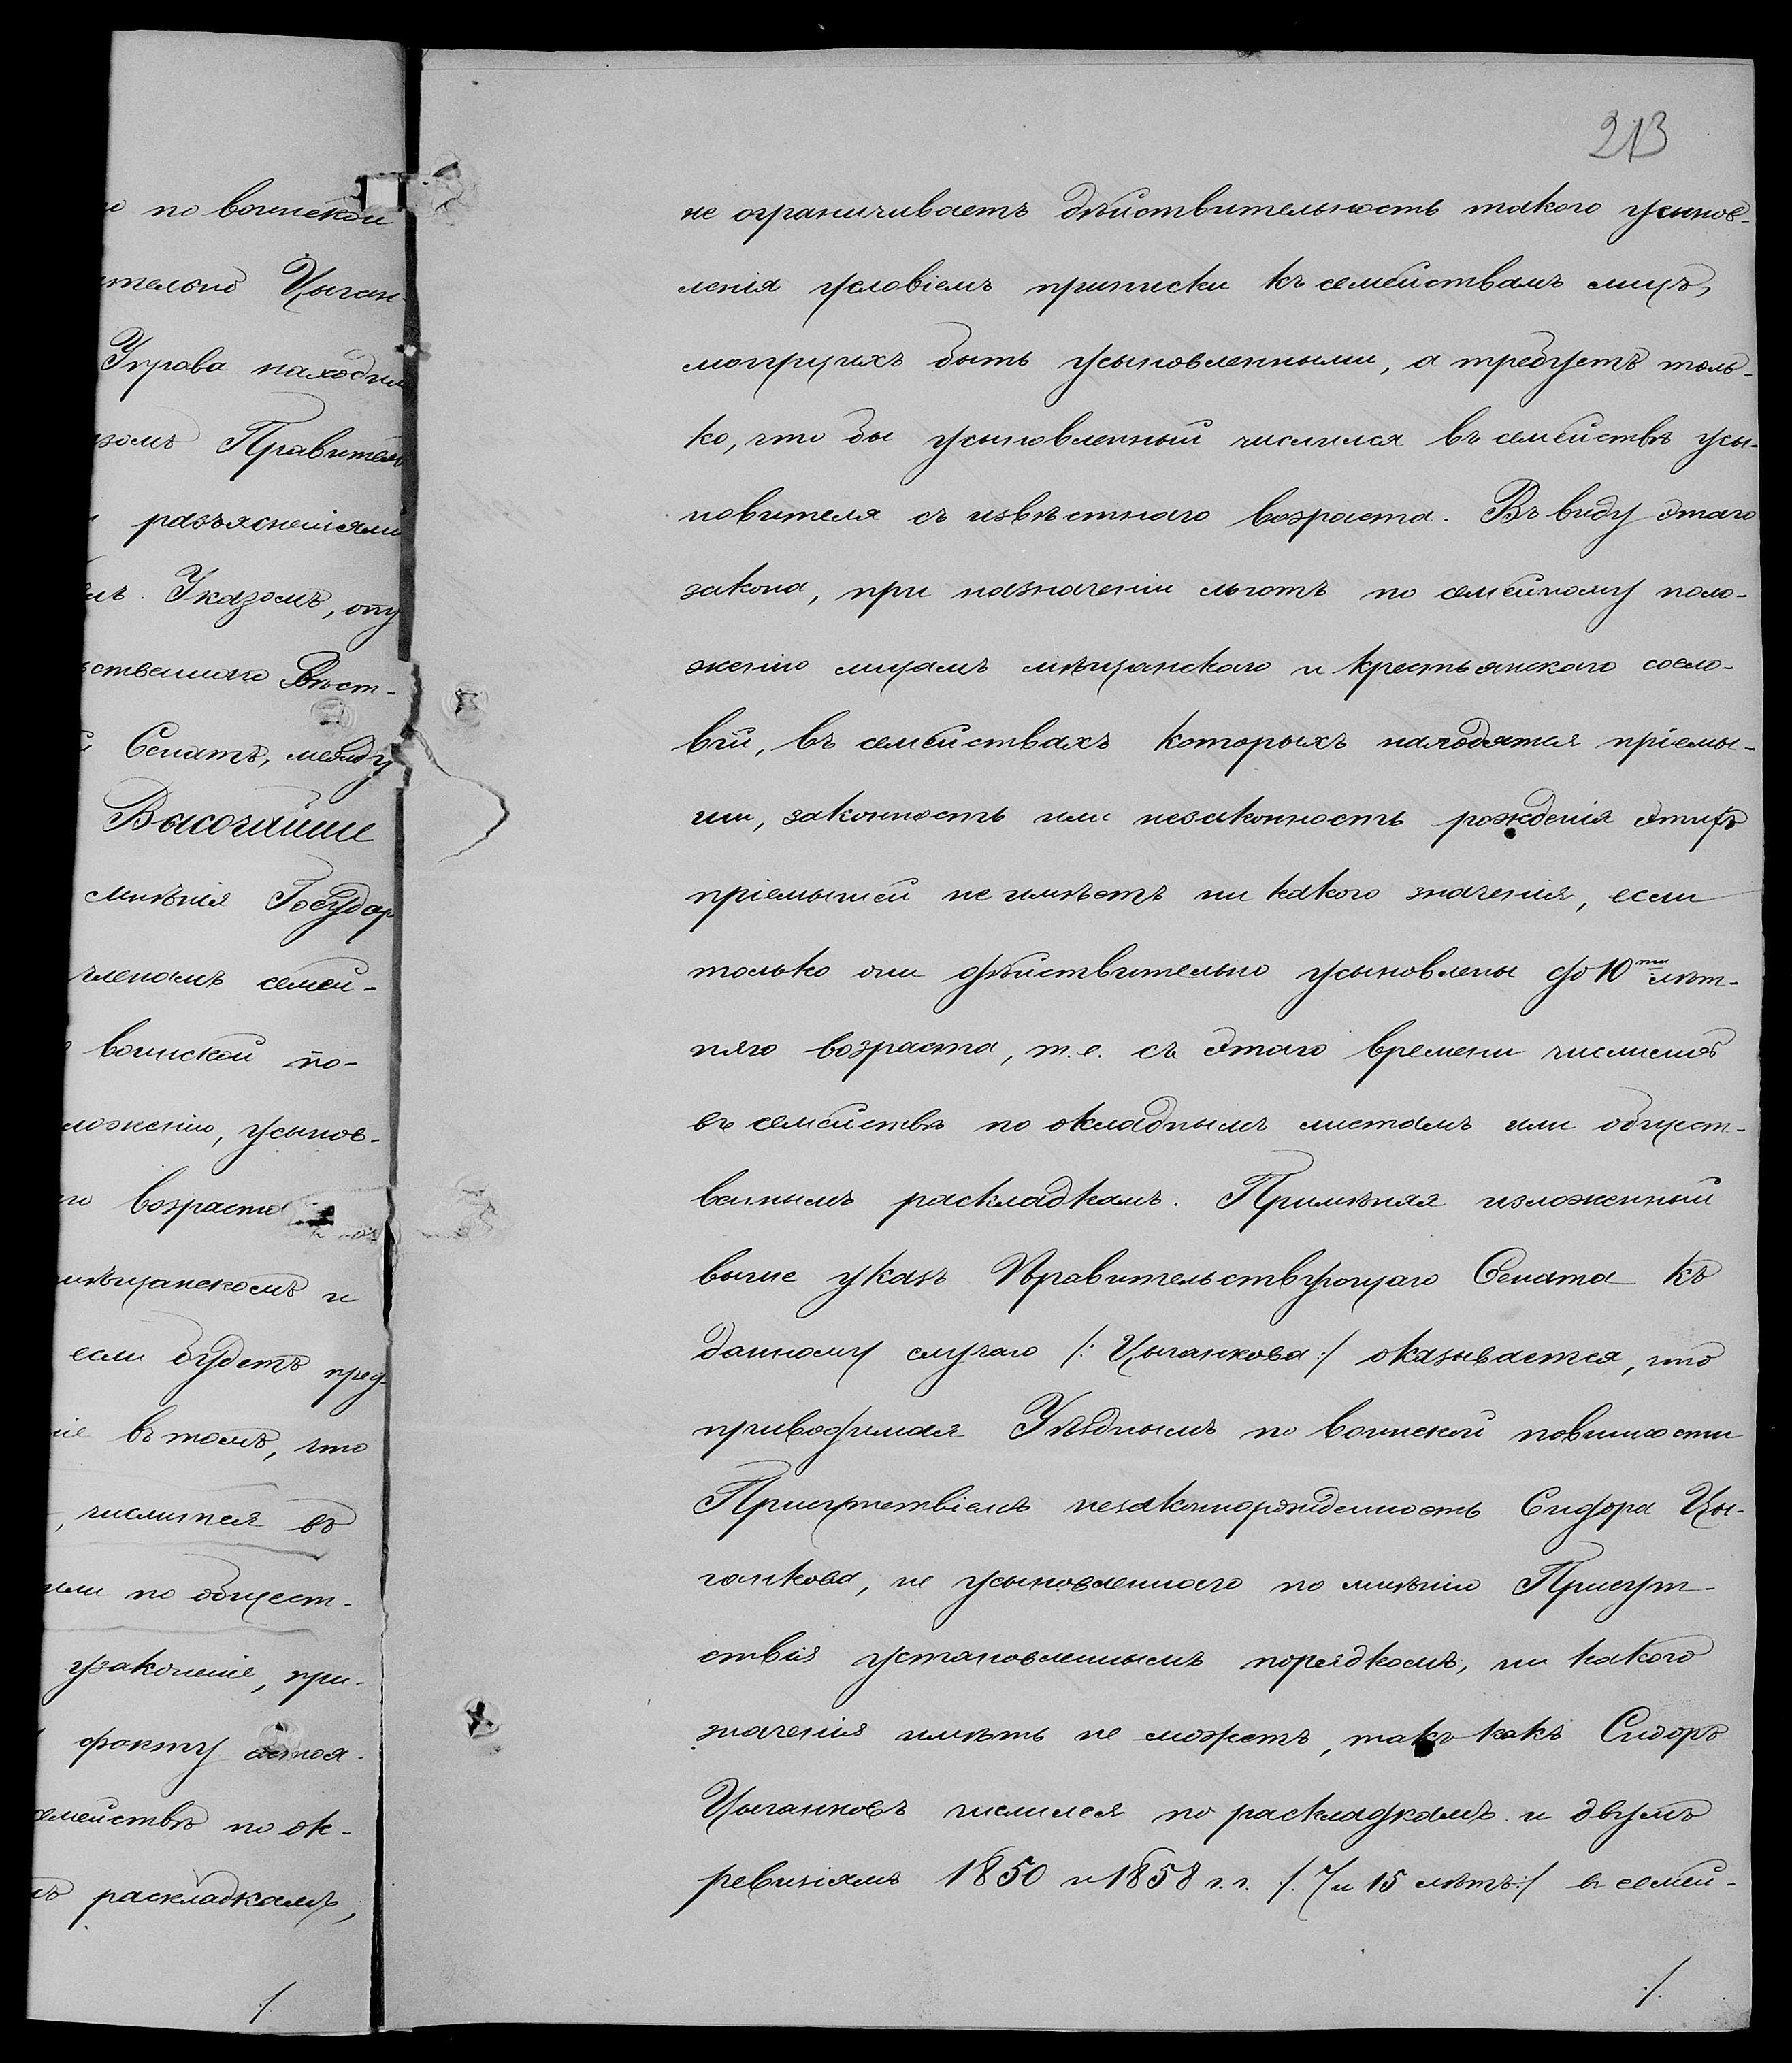 по воинской
Цыган-
Управа находил
Правитель
разъясненіями
Указомъ, опу
ственнаго Вѣст-
Сенатъ, между
Высочайше
мнѣнія Государ
членамъ семей-
воинской по-
ложенію, усынов-
возраста
мѣщанскомъ и
если будетъ пред-
въ томъ, что
, числится въ
или по общест-
узаконеніе, при-
факту состоя-
семействѣ по ок-
раскладкамъ,
./.
213
не ограничиваетъ дѣйствительность такого усынов-
ленія условіемъ приписки къ семействамъ лицъ,
могущихъ быть усыновленными, а требуетъ толь-
ко, что бы усыновленный числился въ семействѣ усы-
новителя съ извѣстнаго возраста. Въ виду этаго
закона, при назначеніи льготъ по семейному поло-
женію лицамъ мѣщанскаго и крестьянскаго сосло-
вій, въ семействахъ которыхъ находятся пріемы-
ши, законность или незаконность рожденія этихъ
пріемышей не имѣетъ ни какого значенія, если
только они дѣйствительно усыновлены до 10ти лѣт-
няго возраста, т.е. съ этаго времени числились
въ семействѣ по окладнымъ листамъ или общест-
веннымъ раскладкамъ. Примѣняя изложенный
выше указъ Правительствующаго Сената къ
данному случаю /: Цыганкова :/ оказывается, что
приводимая Уѣзднымъ по воинской повинности
Присутствіемъ незаконнорожденность Сидора Цы-
ганкова, не усыновленнаго по мнѣнію Присут-
ствія установленнымъ порядкомъ, ни какого
значенія имѣть не можетъ, такъ какъ Сидоръ
Цыганковъ числился по раскладкамъ и двумъ
ревизіямъ 1850 и 1858 г.г. /: 7 и 15 лѣтъ :/ въ семей-
./.